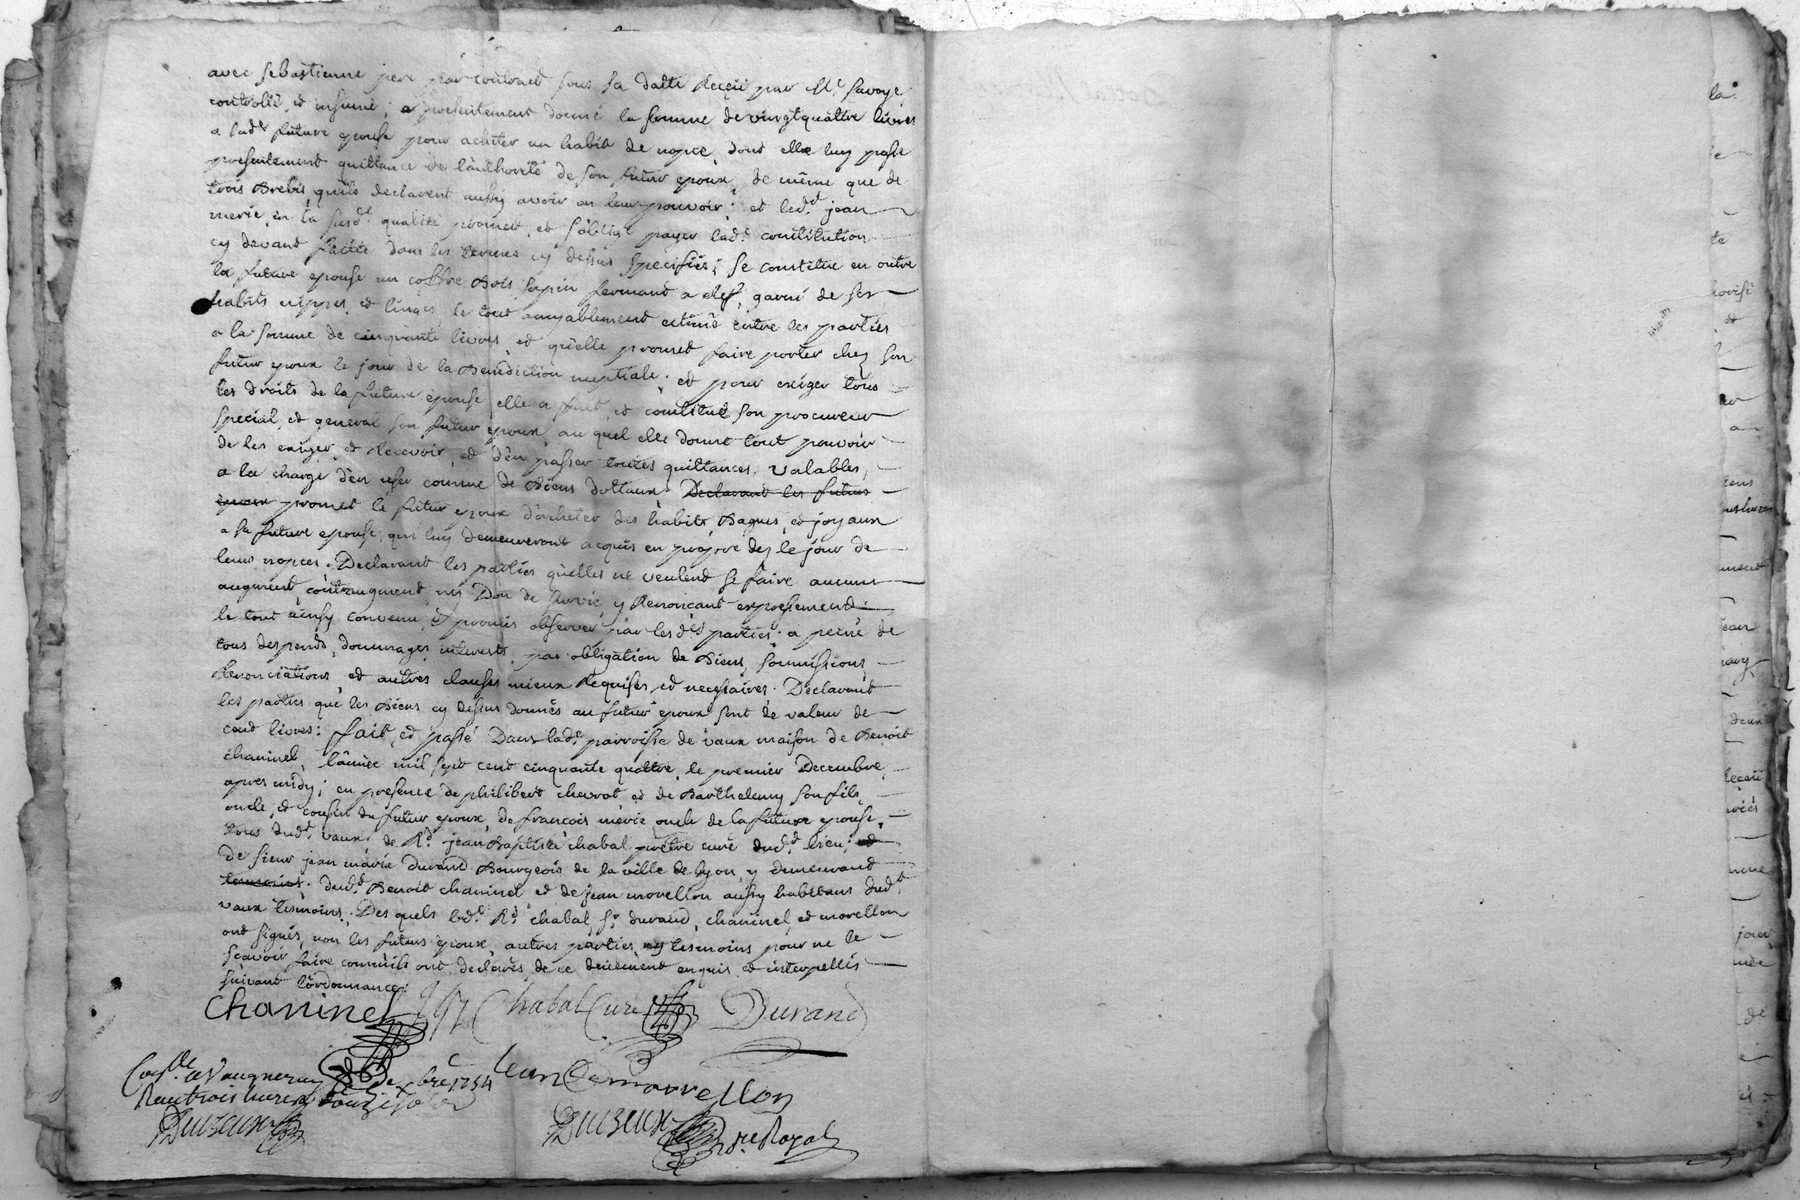 avec sebastienne jere par contract sous sa datte Reçeü par Me. Savoye,
controllé, et insinué; a presentement donné la somme de vingtquattre livres
a lade. future epouse pour acheter un habit de nopce, dont elle luy passe
presentement quittance de l'authorité de son futur epoux, de même que de
trois Brebis, quils declarent aussy avoir en leur pouvoir; et led.t jean
merie en la susd.e qualité promet, et s'oblige payer lad.e constitution
cy devant faicte dans les termes cy dessus specifiés; se constitue en outre
la future epouse un coffre Bois sapin fermant a clef, garni de ses
habits nippes et linges le tout amyablement estimé entre les parties
a la somme de cinquante livres, et qu'elle promet faire porter chez son
futur epoux le jour de la Benediction nuptiale; et pour exiger tous
les droits de la future epouse elle a fait, et constitué son procureur
special, et general son futur epoux, au quel elle donne tout pouvoir
de les exiger, et Recevoir, et d'en passer toutes quittances valables,
a la charge d'en user comme de Biens dottaux. Declarant les futurs
epoux promet le futur epoux d'acheter des habits, Bagues, et joyaux
a sa future epouse, qui luy demeureront acquis en propre dez le jour de
leurs nopces. Declarant les parties qu'elles ne veulent se faire aucune
augment contraugment, ny Don de survie, y Renoncant expressement.
le tout ainsy convenu, et promis observer par les d.es parties; a peine de
tous despends, dommages, interests, par obligation de Biens, soumissions,
Renonciations, et autres clauses mieux Requises, et necessaires. Declarant
les parties que les Biens cy dessus donnés au futur epoux sont de valeur de
cent livres: fait, et passé Dans lad.e parroisse de vaux maison de Benoit
chaninel, l'année mil sept cent cinquante quattre, le premier Decembre,
apres midy; en presence de philibert chavrot, et de Barthelemy son fils,
oncle, et cousin du futur epoux, de francois merie oncle de la future epouse,
tous dud.t vaux, de R.d jean Baptiste chabal prêtre curé dud.t lieu; et
de sieur jean marie Durand Bourgeois de la ville de lyon, y demeurant
temoins. dud.t Benoit chaninel et de jean morellon aussy habitans dud.t
vaux tesmoins. Des quels led.t R.d chabal, s.r durand, chaninel, et morellon
ont signés, non les futurs epoux, autres parties, ny tesmoins pour ne le
scavoir faire comm'ils ont declarés, de ce deüement enquis, et interpellés
suivant l'ordonnance.
Chaninel Chabal Curé Durand
Con.lle a Vaugneray le de xbre 1754 Jean morrellon
Reçu trois livres douze sols
Duizeux Duizeux n.re Royal